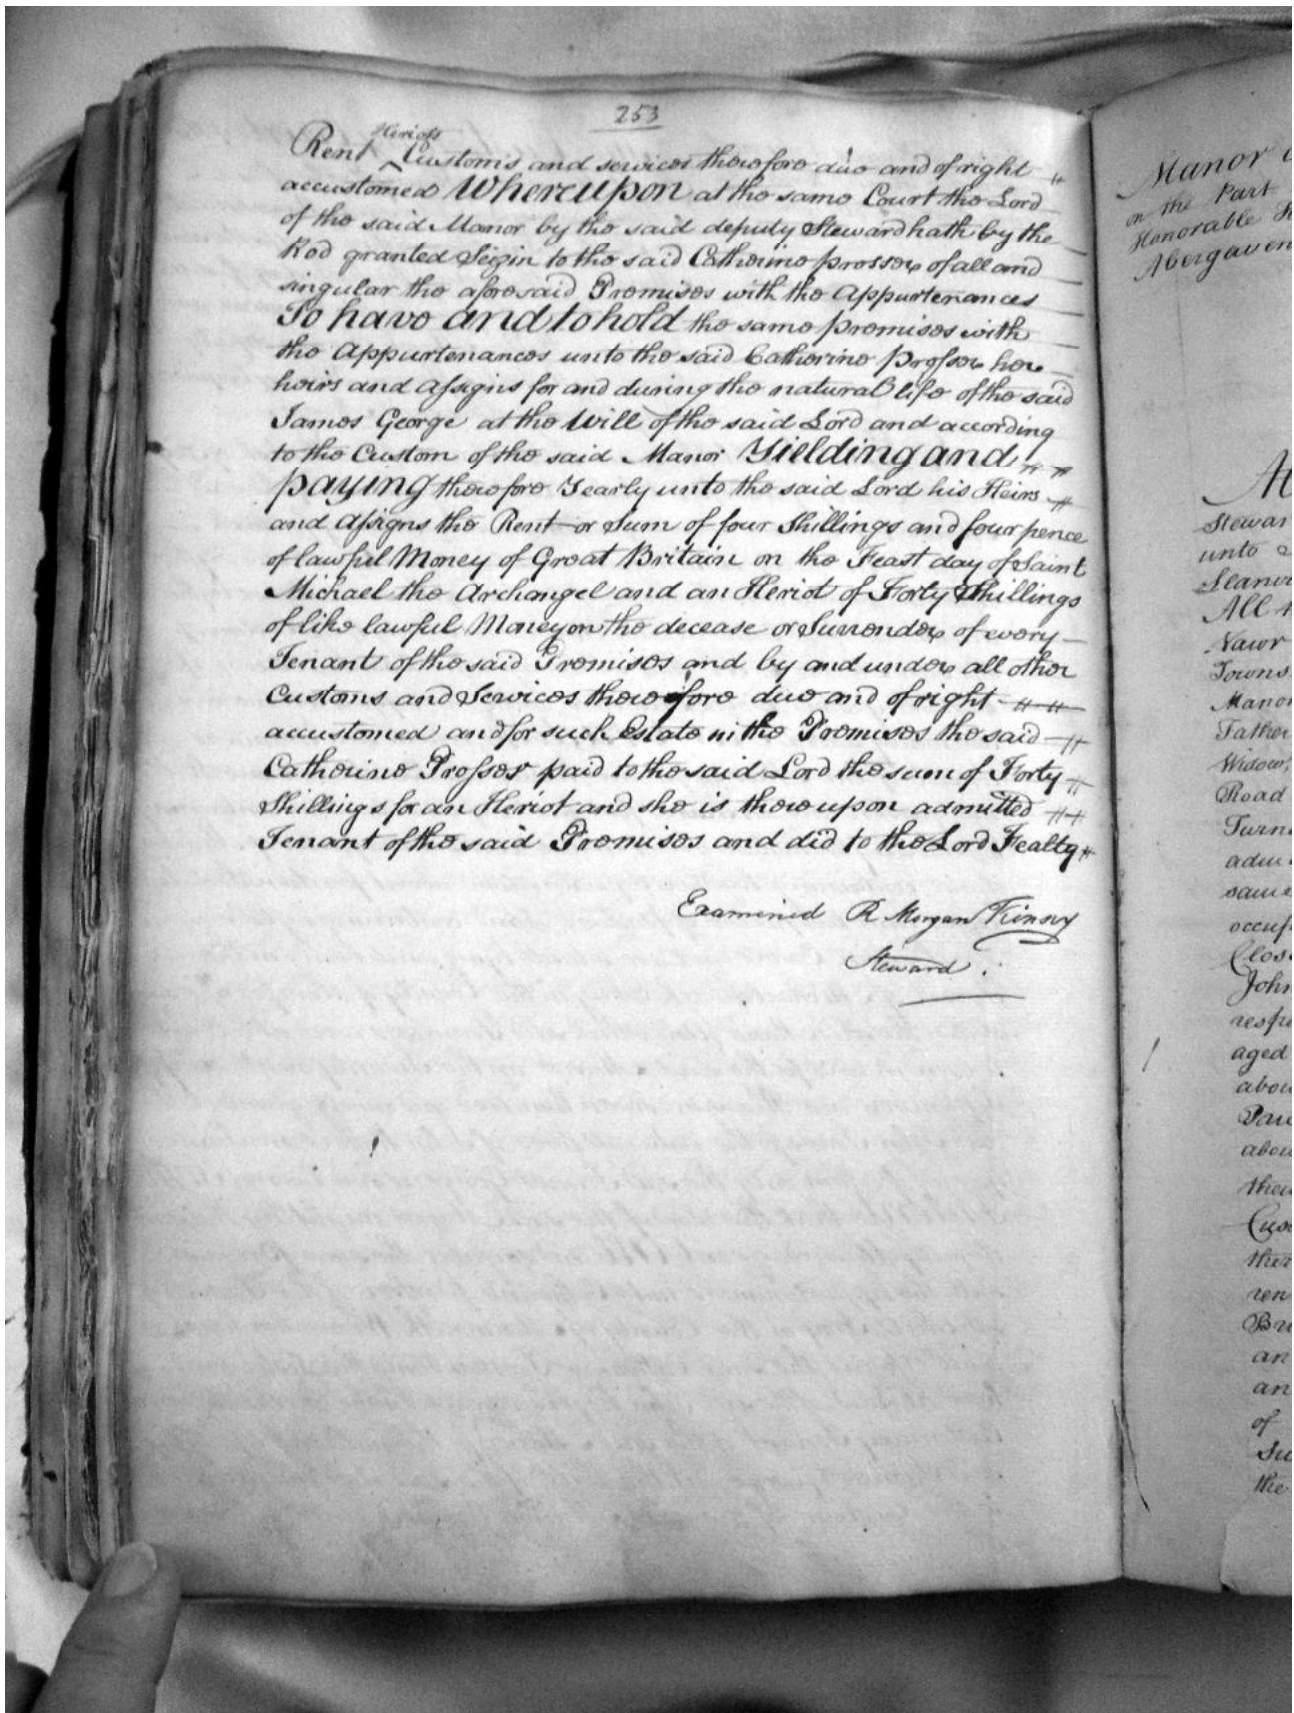 253
Heriots
Rent Customs and services therefore due and of right
accustomed Whereupon at the same Court the Lord
of the said Manor by the said deputy Steward hath by the
Rod granted Seizin to the said Catherine Prosser of all and
singular the aforesaid Premises with the Appurtenances
To have and to hold the same premises with
the Appurtenances unto the said Catherine Prosser her
heirs and Assigns for and during the natural life of the said
James George at the Will of the said Lord and according
to the Custom of the said Manor Yielding and
paying therefore Yearly unto the said Lord his Heirs
and Assigns the Rent or Sum of four Shillings and four pence
of lawful Money of Great Britain on the Feast day of Saint
Michael the Archangel and an Heriot of Forty Shillings
of like lawful Money on the decease or Surrender of every
Tenant of the said Premises and by and under all other
Customs and Services therefore due and of right
accustomed and for such Estate in the Premises the said
Catherine Prosser paid to the said Lord the sum of Forty
Shillings for an Heriot and she is thereupon admitted
Tenant of the said Premises and did to the Lord Fealty
Examined R Morgan
Steward
Manor
on the Part
Honorable
Abergaven
Stewar
unto
Llanv
All
Vawr
Towns
Manor
Father
Widow,
Road
Turn
adm
same
occup
Close
John
respe
aged
abou
abou
then
Cus
ther
ren
Br
an
an
of
Su
the